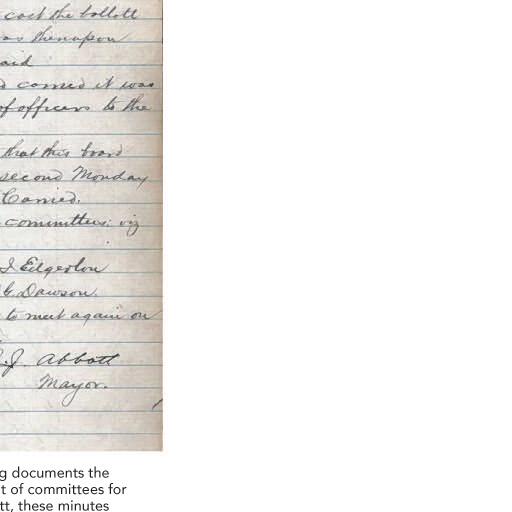 cast the ballott
as thereupon
aid
d carried it was
of officers to the
that this board
second Monday
Carried.
committees: viz
J Edgerton
G. Dawson.
to meet again on
J. Abbott
Mayor.
g documents the
t of committees for
tt, these minutes